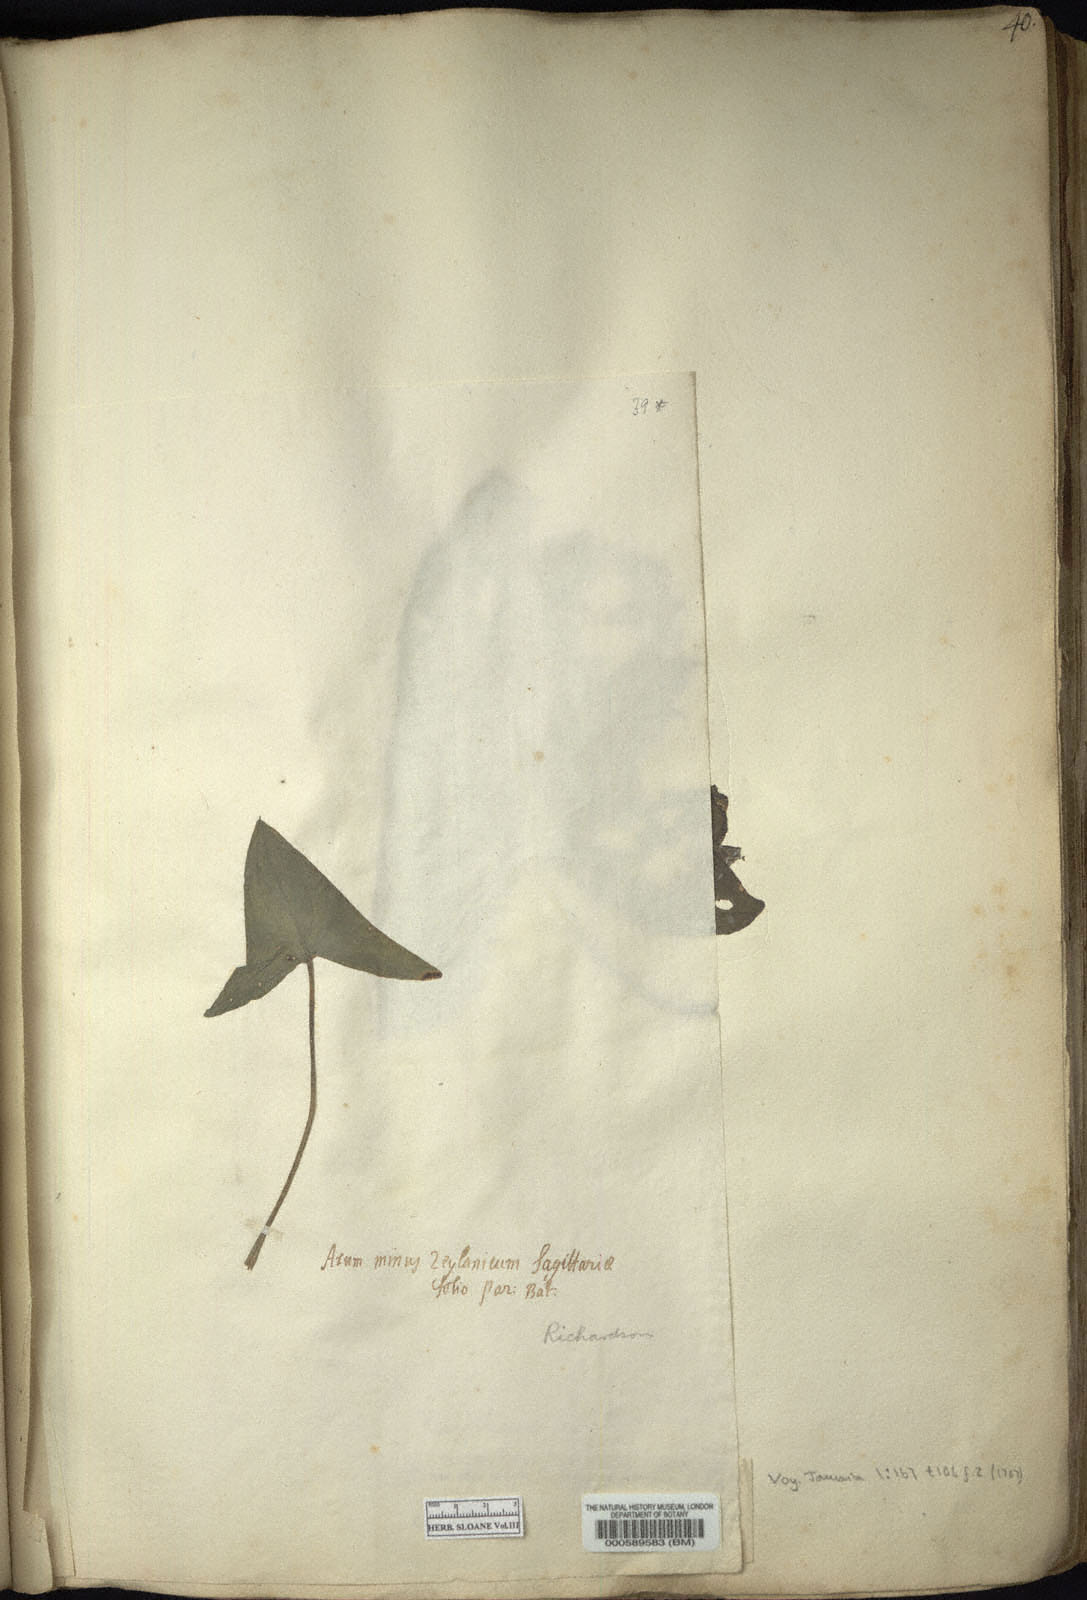 40.
39*
Arum minus Zeylanicum Sagittariæ
folio par: Bat:
Richardson
Voy. Jamaica 1:167 t.106 f.2 (1707)
HERB. SLOANE Vol.III
THE NATURAL HISTORY MUSEUM, LONDON
DEPARTMENT OF BOTANY
000589583 (BM)